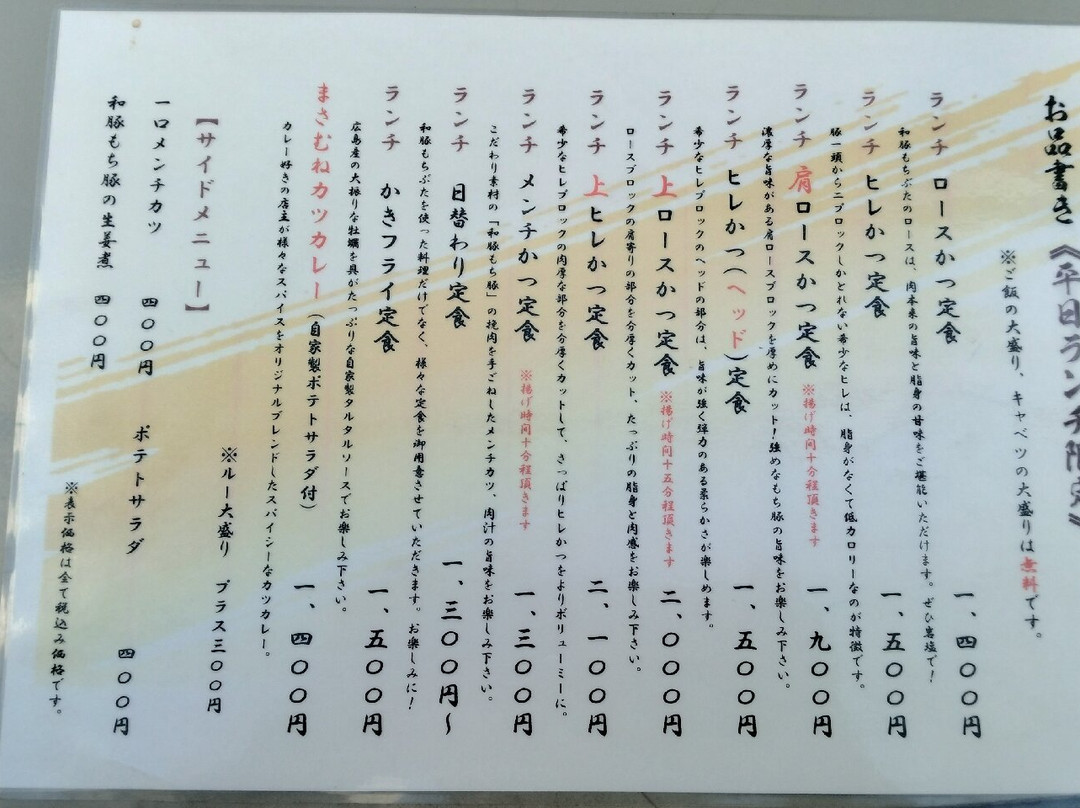 お品書き《平日ランチ限定》
※ご飯の大盛り、キャベツの大盛りは無料です。
ランチ ロースかつ定食 一、四〇〇円
和豚もちぶたのロースは、肉本来の旨味と脂身の甘味をご堪能いただけます。ぜひ岩塩で!
ランチ ヒレかつ定食 一、五〇〇円
豚一頭から二ブロックしかとれない希少なヒレは、脂身がなくて低カロリーなのが特徴です。
ランチ 肩ロースかつ定食 ※揚げ時間十分程頂きます 一、九〇〇円
濃厚な旨味がある肩ロースブロックを厚めにカット!強めなもち豚の旨味をお楽しみ下さい。
ランチ ヒレかつ(ヘッド)定食 一、五〇〇円
希少なヒレブロックのヘッドの部分は、旨味が強く弾力のある柔らかさが楽しめます。
ランチ 上ロースかつ定食 ※揚げ時間十五分程頂きます 二、〇〇〇円
ロースブロックの肩寄りの部分を分厚くカット、たっぷりの脂身と肉感をお楽しみ下さい。
ランチ 上ヒレかつ定食 二、一〇〇円
希少なヒレブロックの肉厚な部分を分厚くカットして、さっぱりヒレかつをよりボリューミーに。
ランチ メンチかつ定食 ※揚げ時間十分程頂きます 一、三〇〇円
こだわり素材の「和豚もち豚」の挽肉を手ごねしたメンチカツ、肉汁の旨味をお楽しみ下さい。
ランチ 日替わり定食 一、三〇〇円〜
和豚もちぶたを使った料理だけでなく、様々な定食を御用意させていただきます。お楽しみに!
ランチ かきフライ定食 一、五〇〇円
広島産の大振りな牡蠣を具がたっぷりな自家製タルタルソースでお楽しみ下さい。
まさむねカツカレー(自家製ポテトサラダ付) 一、四〇〇円
カレー好きの店主が様々なスパイスをオリジナルブレンドしたスパイシーなカツカレー。
※ルー大盛り プラス三〇〇円
【サイドメニュー】
一口メンチカツ 四〇〇円 ポテトサラダ 四〇〇円
和豚もち豚の生姜煮 四〇〇円
※表示価格は全て税込み価格です。